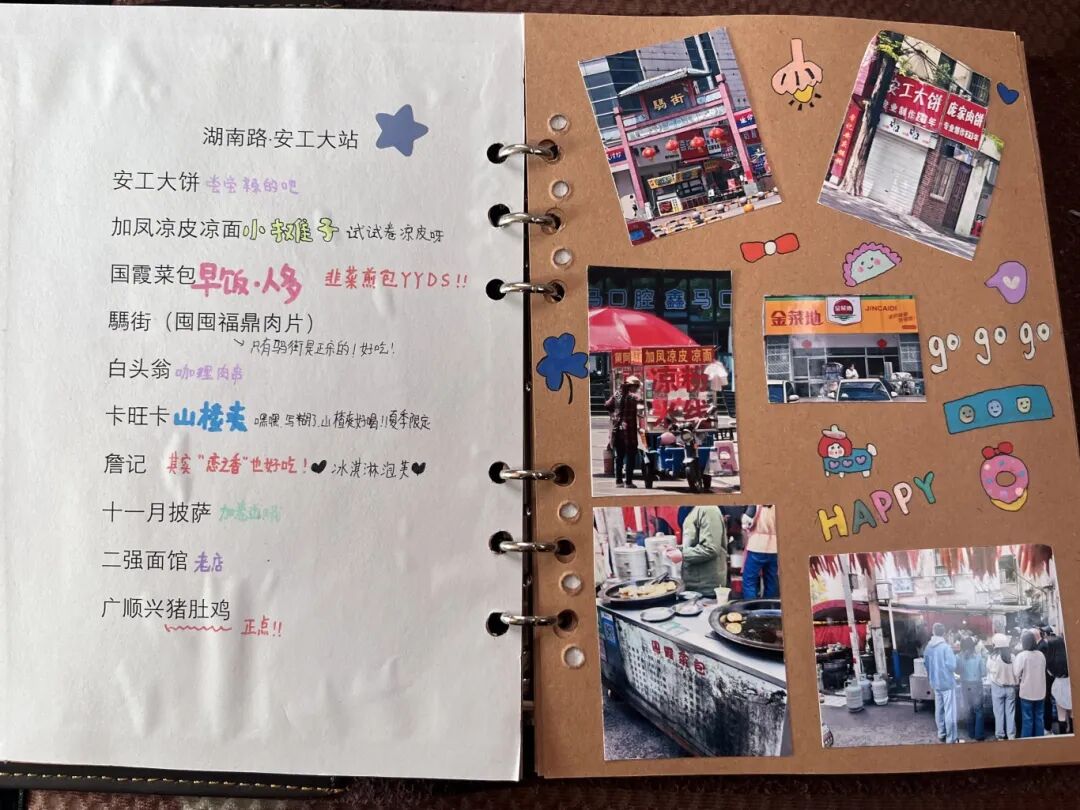 湖南路·安工大站
安工大饼 尝尝辣的吧
加凤凉皮凉面 小摊子 试试卷凉皮呀
国霞菜包 早饭·人多 韭菜煎包YYDS!!
騳街（囤囤福鼎肉片）
只有騳街是正宗的！好吃！
白头翁 咖喱肉串
卡旺卡 山楂麦 嘿嘿,写糊了,山楂麦好喝!!夏季限定
詹记 其实“恋之香”也好吃！冰淇淋泡芙
十一月披萨
二强面馆 老店
广顺兴猪肚鸡 正点!!
街
安工大饼
庞家肉饼
马口腔 鑫马口
加凤凉皮 凉面
凉粉
金菜地
JINCAIDI
国霞菜包
go go go
HAPPY